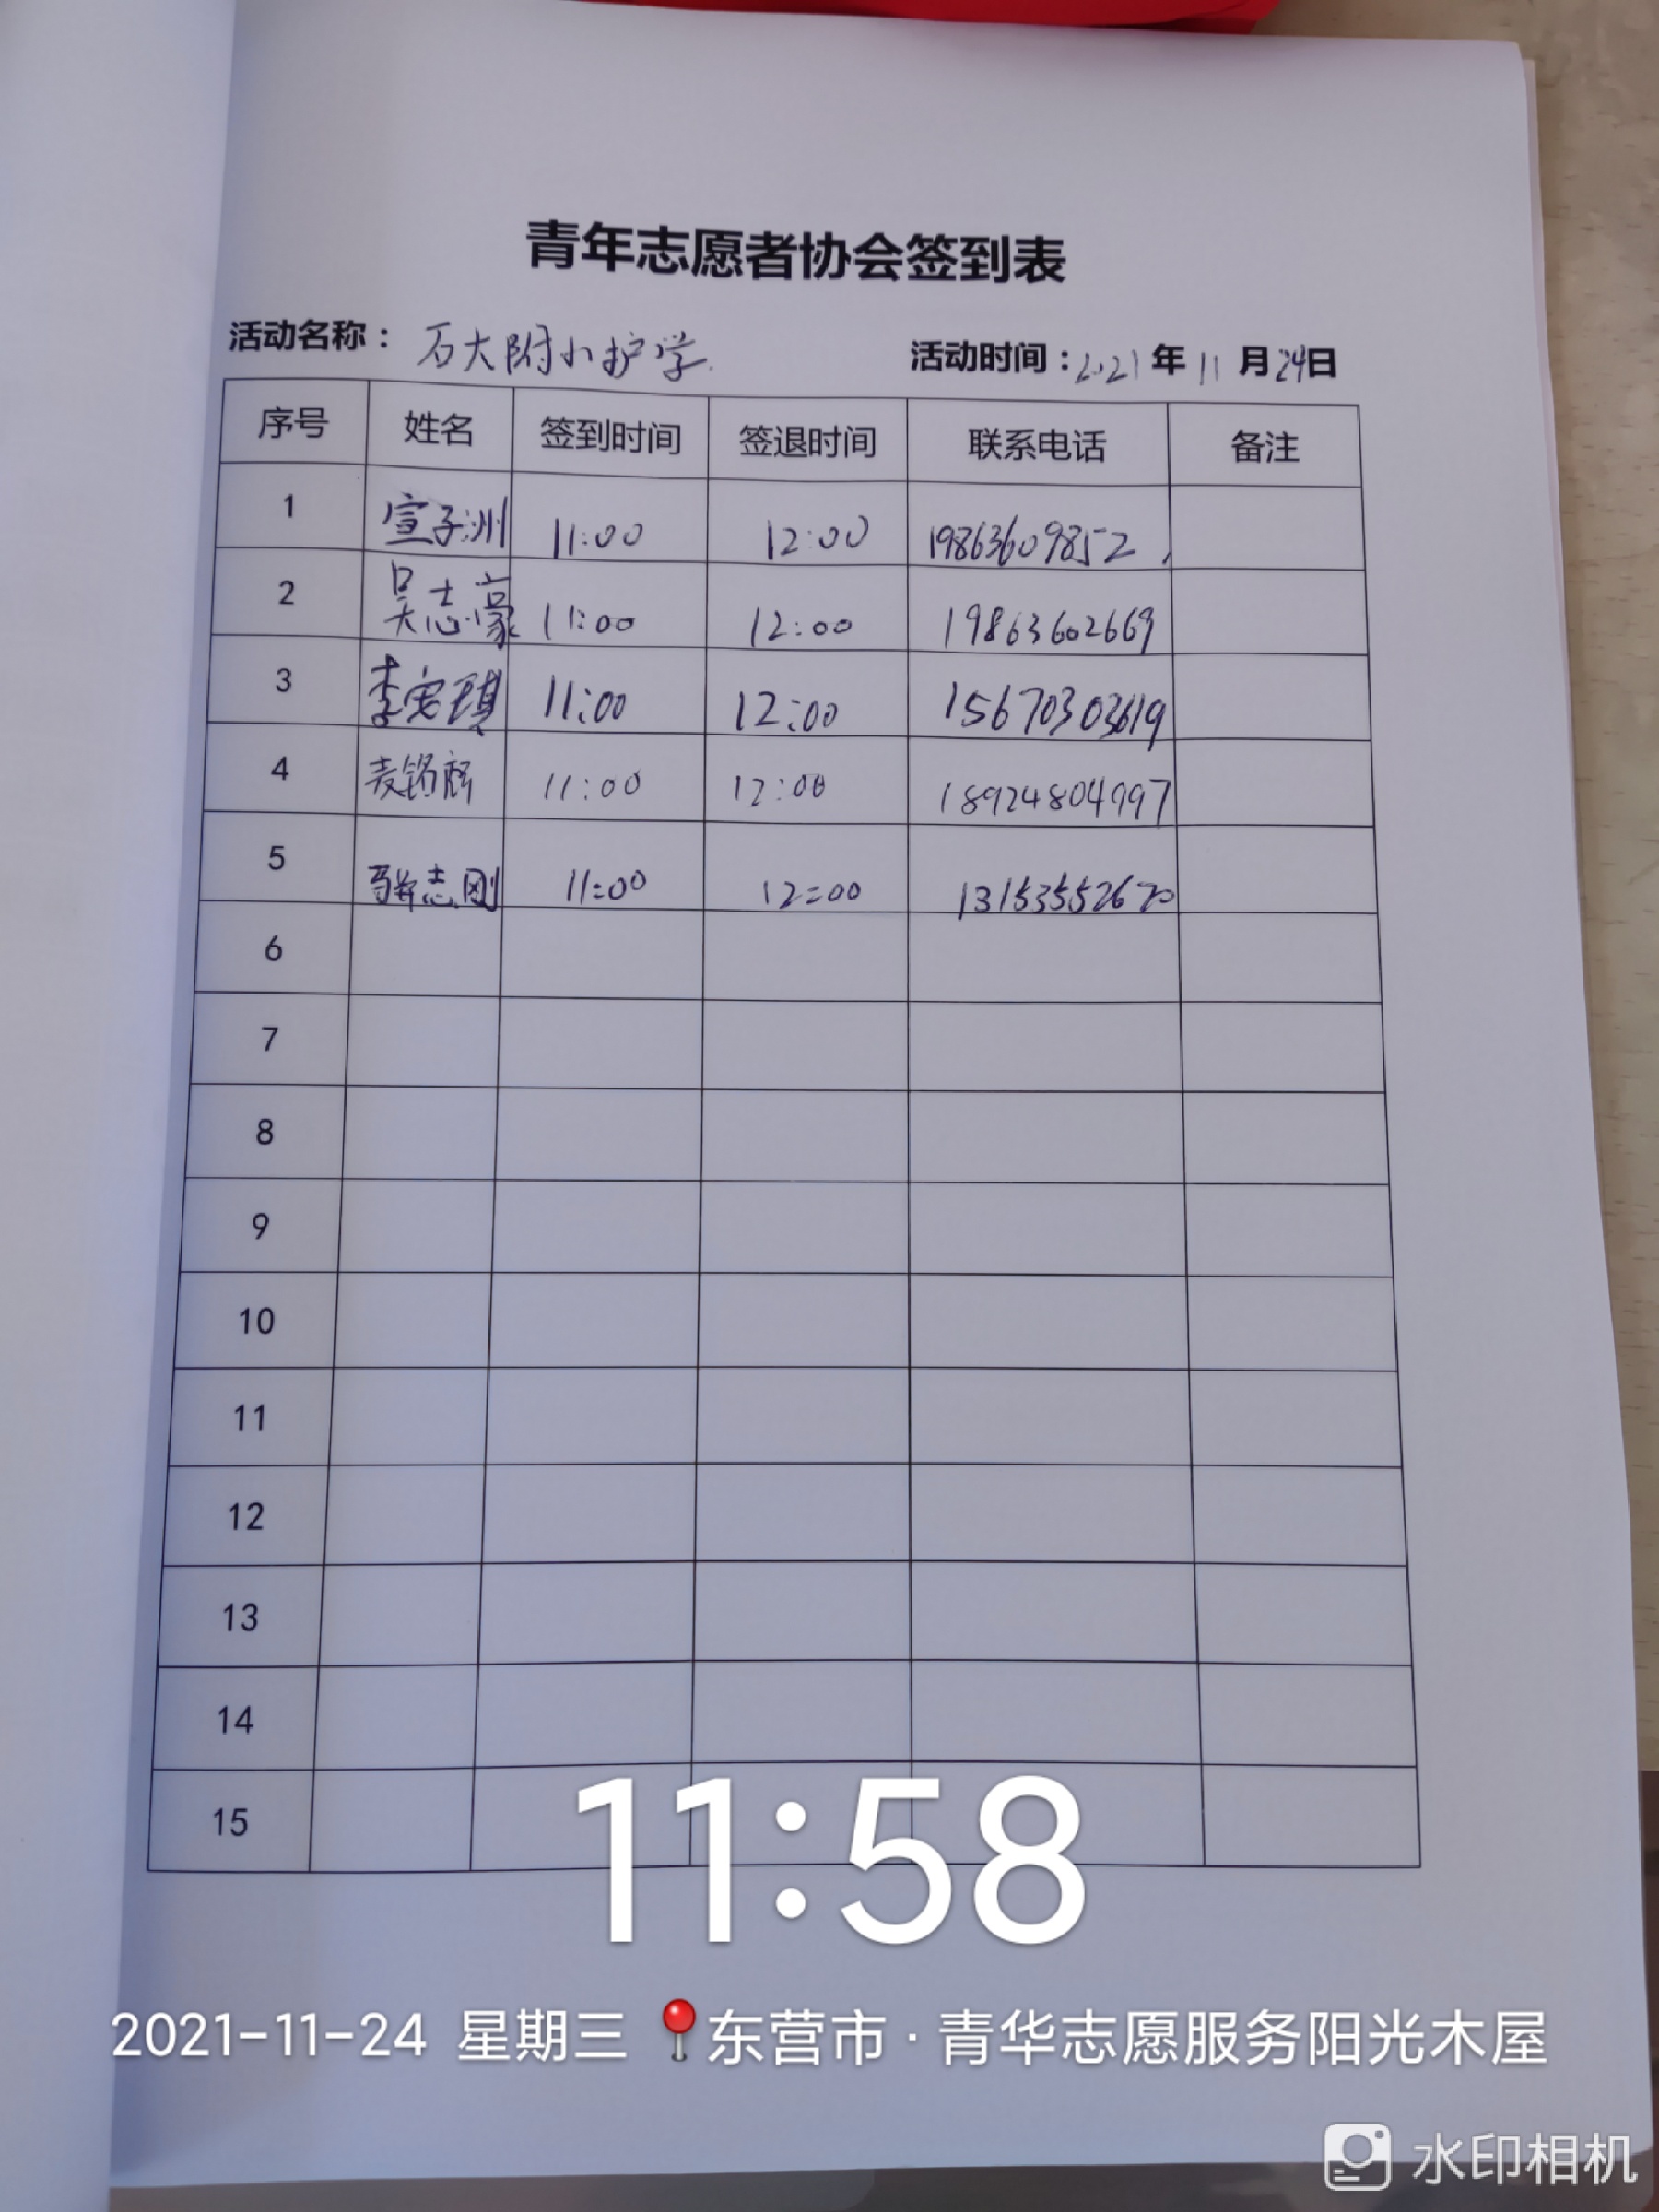 青年志愿者协会签到表
活动名称： 石大附小护学 活动时间：2021年11月24日
序号 姓名 签到时间 签退时间 联系电话 备注
1 宣子洲 11:00 12:00 19863609852
2 吴志豪 11:00 12:00 19863602669
3 李宏琪 11:00 12:00 15670303619
4 麦锦辉 11:00 12:00 18924804997
5 志刚 11:00 12:00 13153552670
6
7
8
9
10
11
12
13
14
15
11:58
2021-11-24 星期三 东营市·青华志愿服务阳光木屋
水印相机